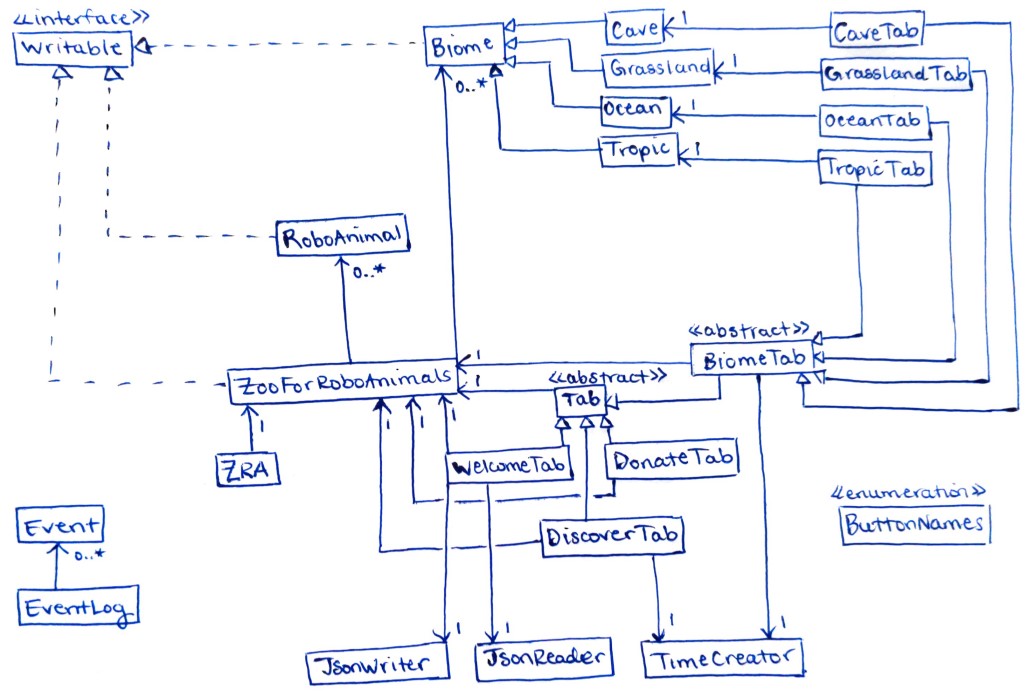 <<interface>>
Writable
Biome
0..*
Cave
1
CaveTab
Grassland
1
GrasslandTab
Ocean
1
OceanTab
Tropic
1
TropicTab
RoboAnimal
0..*
<<abstract>>
BiomeTab
1
ZooForRoboAnimals
1
<<abstract>>
Tab
1
1
1
1
ZRA
WelcomeTab
DonateTab
<<enumeration>>
ButtonNames
Event
0..*
DiscoverTab
EventLog
1
1
1
1
JsonWriter
JsonReader
TimeCreator